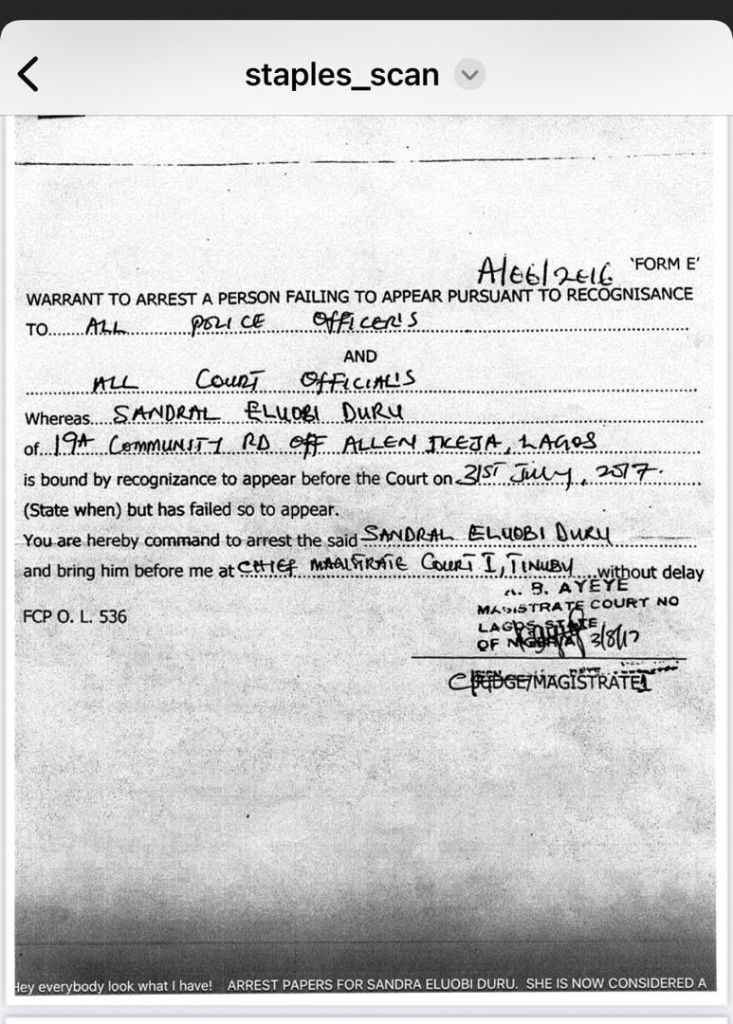 staples_scan
A/06/2016 'FORM E'
WARRANT TO ARREST A PERSON FAILING TO APPEAR PURSUANT TO RECOGNISANCE
TO.....ALL POLICE OFFICER'S
AND
ALL COURT OFFICIAL'S
Whereas...SANDRAL ELUOBI DURU
of..19A COMMUNITY RD OFF ALLEN IKEJA, LAGOS
is bound by recognizance to appear before the Court on 31ST July, 2017.
(State when) but has failed so to appear.
You are hereby command to arrest the said SANDRAL ELUOBI DURU
and bring him before me at CHIEF MAGISTRATE COURT I, TINUBU without delay
B. AYEYE
MAGISTRATE COURT NO
FCP O. L. 536
LAGOS STATE
OF NIGERIA 3/8/17
JUDGE/MAGISTRATE
Hey everybody look what I have! ARREST PAPERS FOR SANDRA ELUOBI DURU. SHE IS NOW CONSIDERED A